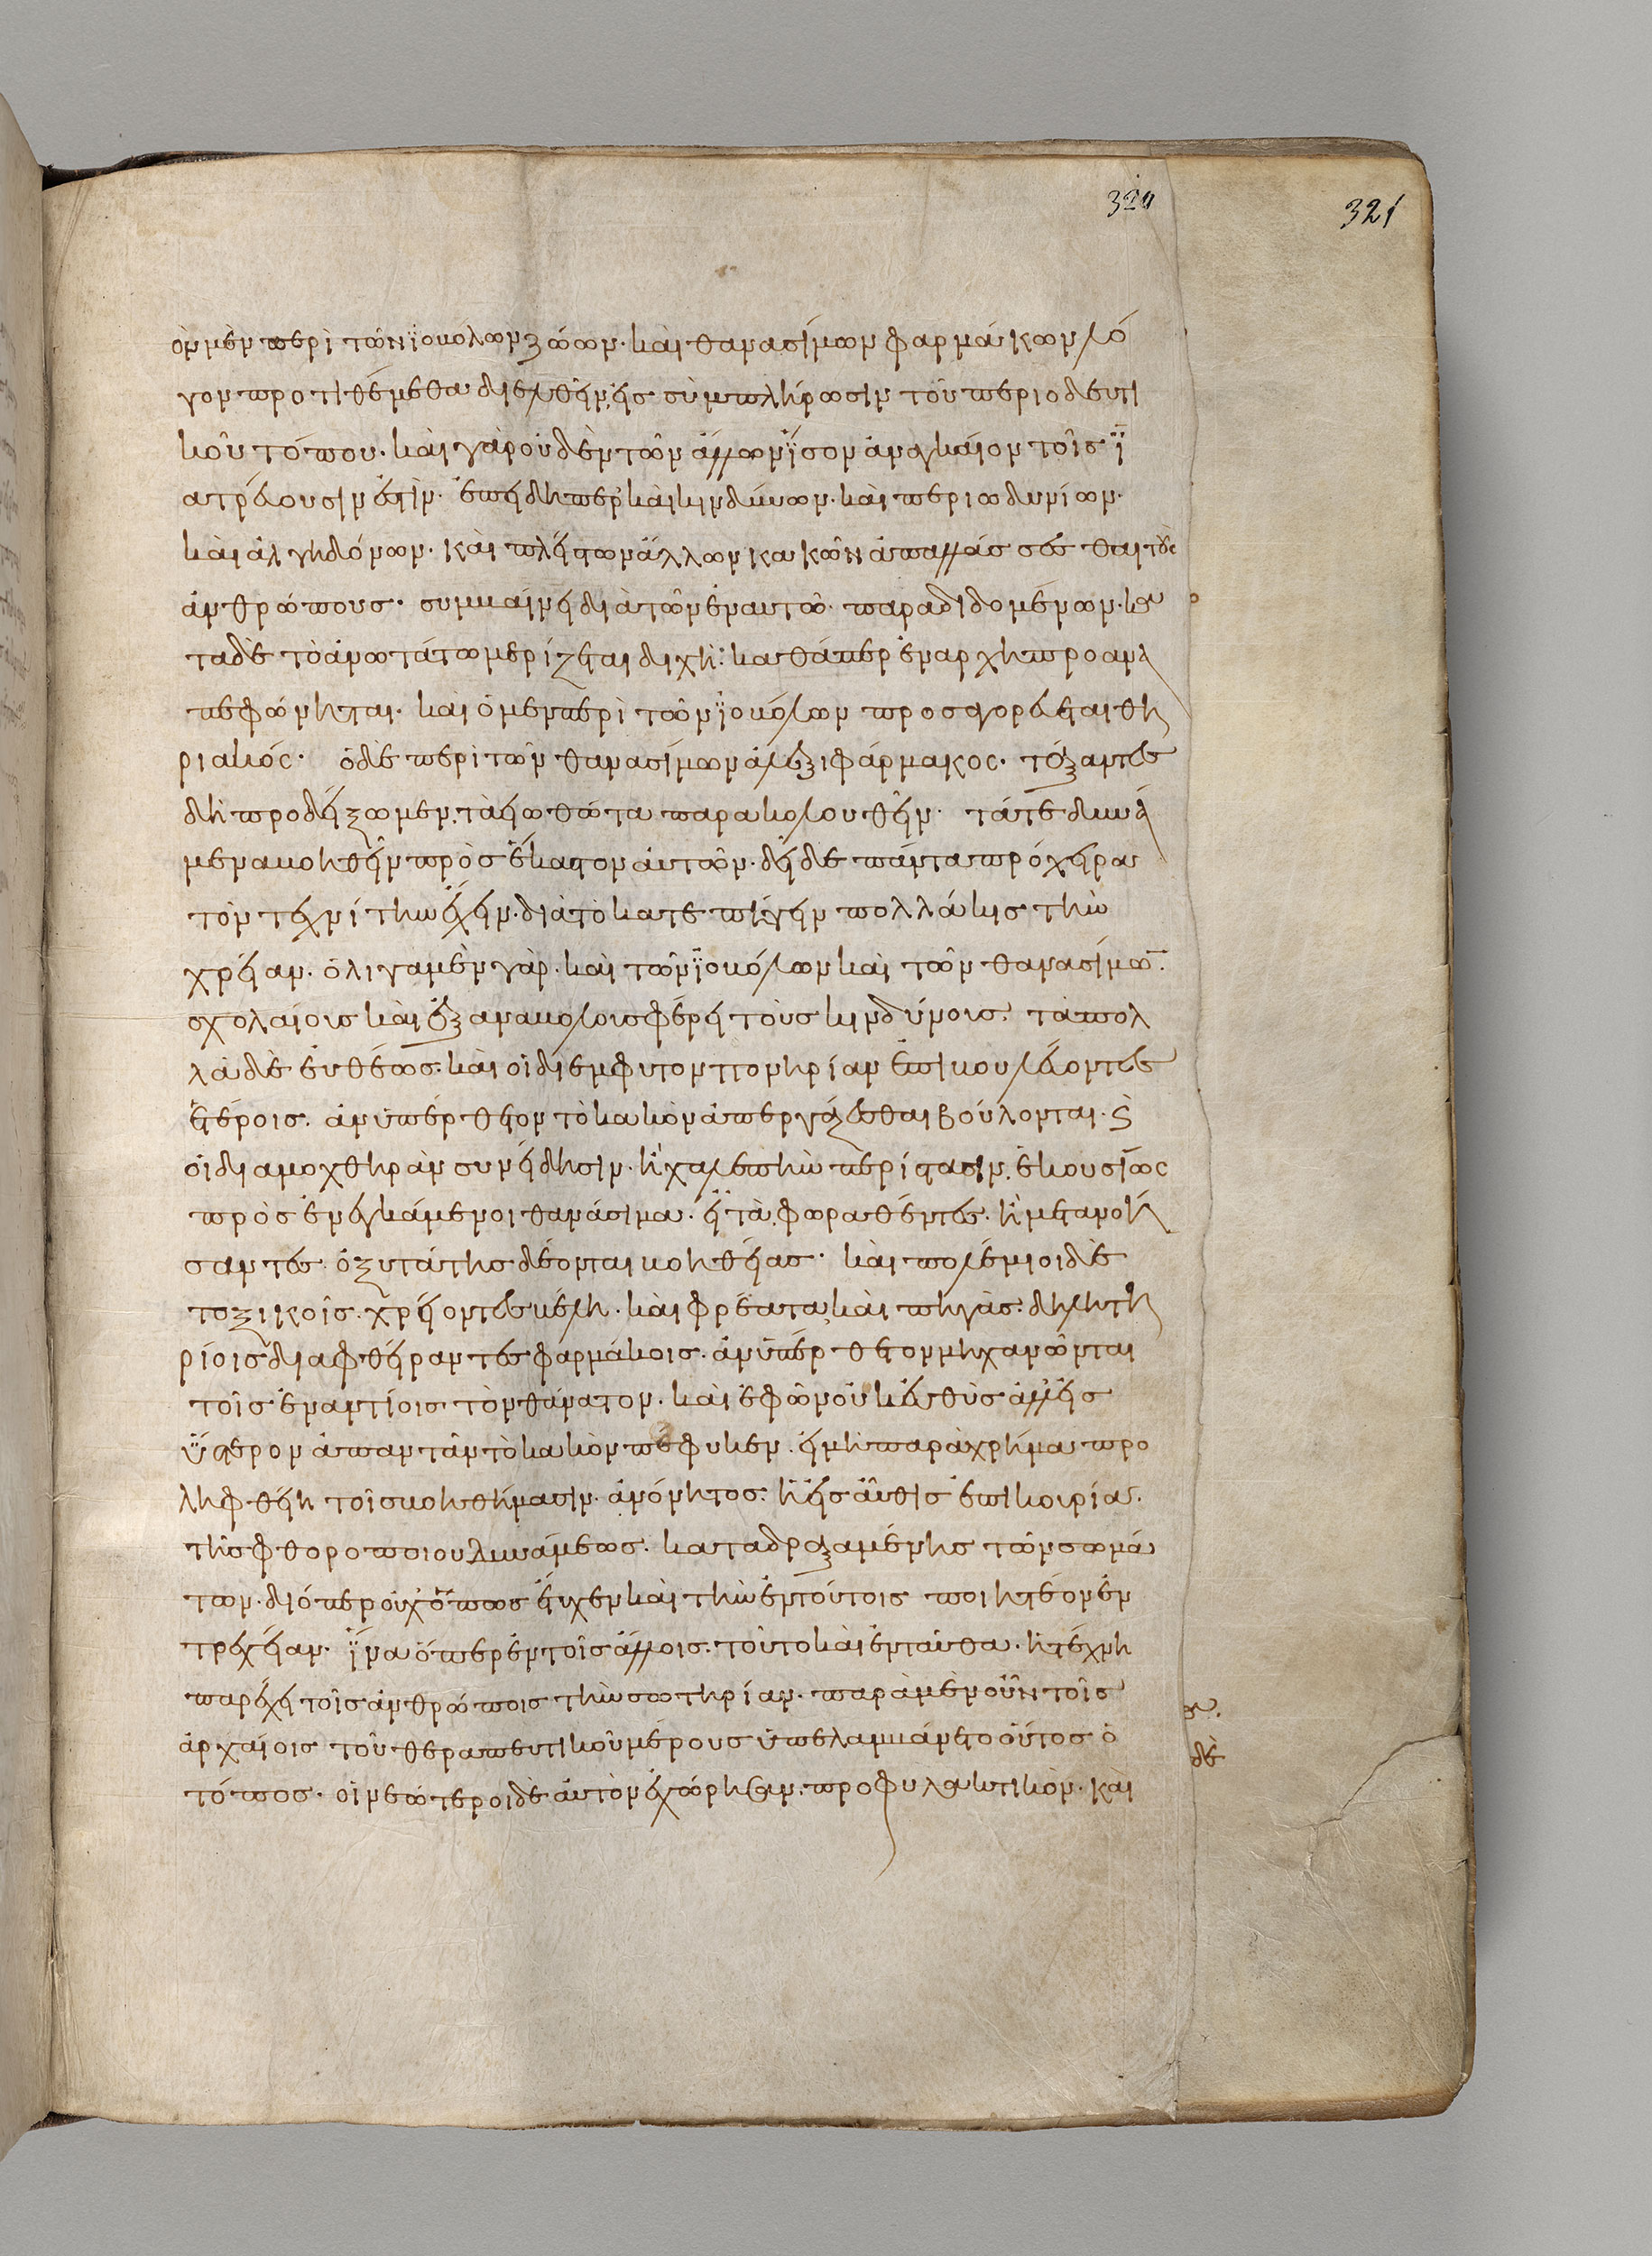 320
321
ὃν μὲν περὶ τῶν ϊοβόλων ζώων. καὶ θανασίμων φαρμάκων λό
γον προτιθέμεθα διελθεῖν, εἰς συμπλήρωσιν τοῦ περιοδευτι
κοῦ τόπου. καὶ γὰρ οὐδὲν τῶν ἄλλων ἴσον ἀναγκαῖον τοῖς ϊ
ατρεύουσίν ἐστιν. ἐπειδήπερ καὶ κινδύνων. καὶ περιωδυνίων.
καὶ ἀλγηδόνων. καὶ πλείστων ἄλλων κακῶν ἀπαλλάσσεσθαι τοὺς
ἀνθρώπους. συμβαίνει διὰ τῶν ἐν αυτῶ παραδιδομένων. κα
τα δὲ τὸ ἀνωτάτω μερίζεται διχῆ. καθάπερ ἐν αρχῆ προαν
πεφώνηται. καὶ ὁ μεν περὶ τῶν ϊοβόλων προσαγορεύεται θη
ριακός. ὁ δὲ περὶ τῶν θανασίμων ἀλεξιφάρμακος. τάξαντες
δὴ προδείξωμεν τὰ εἰωθότα παρακολουθεῖν. τά τε δυνά
μενα βοηθεῖν πρὸς ἕκαστον αὐτῶν. δεῖ δε πάντα πρόχειρα
τὸν τεχνίτην ἔχειν. διὰ τὸ κατεπείγειν πολλάκις τὴν
χρείαν. ὀλιγα μὲν γὰρ. καὶ τῶν ϊοβόλων καὶ τῶν θανασίμω̅.
σχολαίοις καὶ ἐξ αναβολοις φέρει τοὺς κινδύνοις. τὰ πολ
λὰ δὲ εὐθέως. καὶ οἱ δι εμφυτον πονηρίαν ἐπιβουλεύοντες
ἑτέροις. ἀνϋπέρθετον τὸ κακὸν ἀπεργάζεσθαι βούλονται. ϛ̀
οἱ δια μοχθηρὰν συνείδησιν. ἢ χαλεπὴν περίστασιν. ἑκουσίως
προσενεγκάμενοι θανάσιμα. εἶτα φωραθέντες. ἢ μετανοή
σαντες ὀξυτάτης δέονται βοηθείας. καὶ πολέμιοι δὲ
τοξικοῖς χρείοντες βέλη. καὶ φρέατα καὶ πηγὰς. δηλητη
ρίοις διαφθείραντες φαρμάκοις. ἀνϋπέρθετον μηχανῶνται
τοῖς ἐναντίοις τὸν θάνατον. καὶ ἐφ ὧν οὐκ εὐθὺς ἀλλ εἰς
ὕστερον ἀπαντᾶν τὸ κακὸν πέφυκεν. εἰ μὴ παρὰ χρῆμα προ
ληφθείη τοῖς βοηθήμασιν. ἀνόνητος. ἡ εἰς αὖθις ἐπικουρία.
τῆς φθοροποιου δυνάμεως. καταδραξαμένης τῶν σωμά
των. διόπερ οὐχ ὅπως ἔτυχεν καὶ τὴν ἐν τούτοις ποιητέον ἐν
τρέχειαν. ἵνα ὅπερ ἐν τοῖς ἄλλοις. τοῦτο καὶ ἐνταῦθα. ἡ τέχνη
παρέχη τοῖς ἀνθρώποις τὴν σωτηρίαν. παρὰ μὲν οὖν τοῖς
ἀρχαίοις τοῦ θεραπευτικοῦ μέρους ὑπελαμβάνετο οὗτος ὁ
τόπος. οἱ νεώτεροι δὲ αὐτὸν ἐχώρησαν. προφυλακτικὸν. καὶ
δὲ